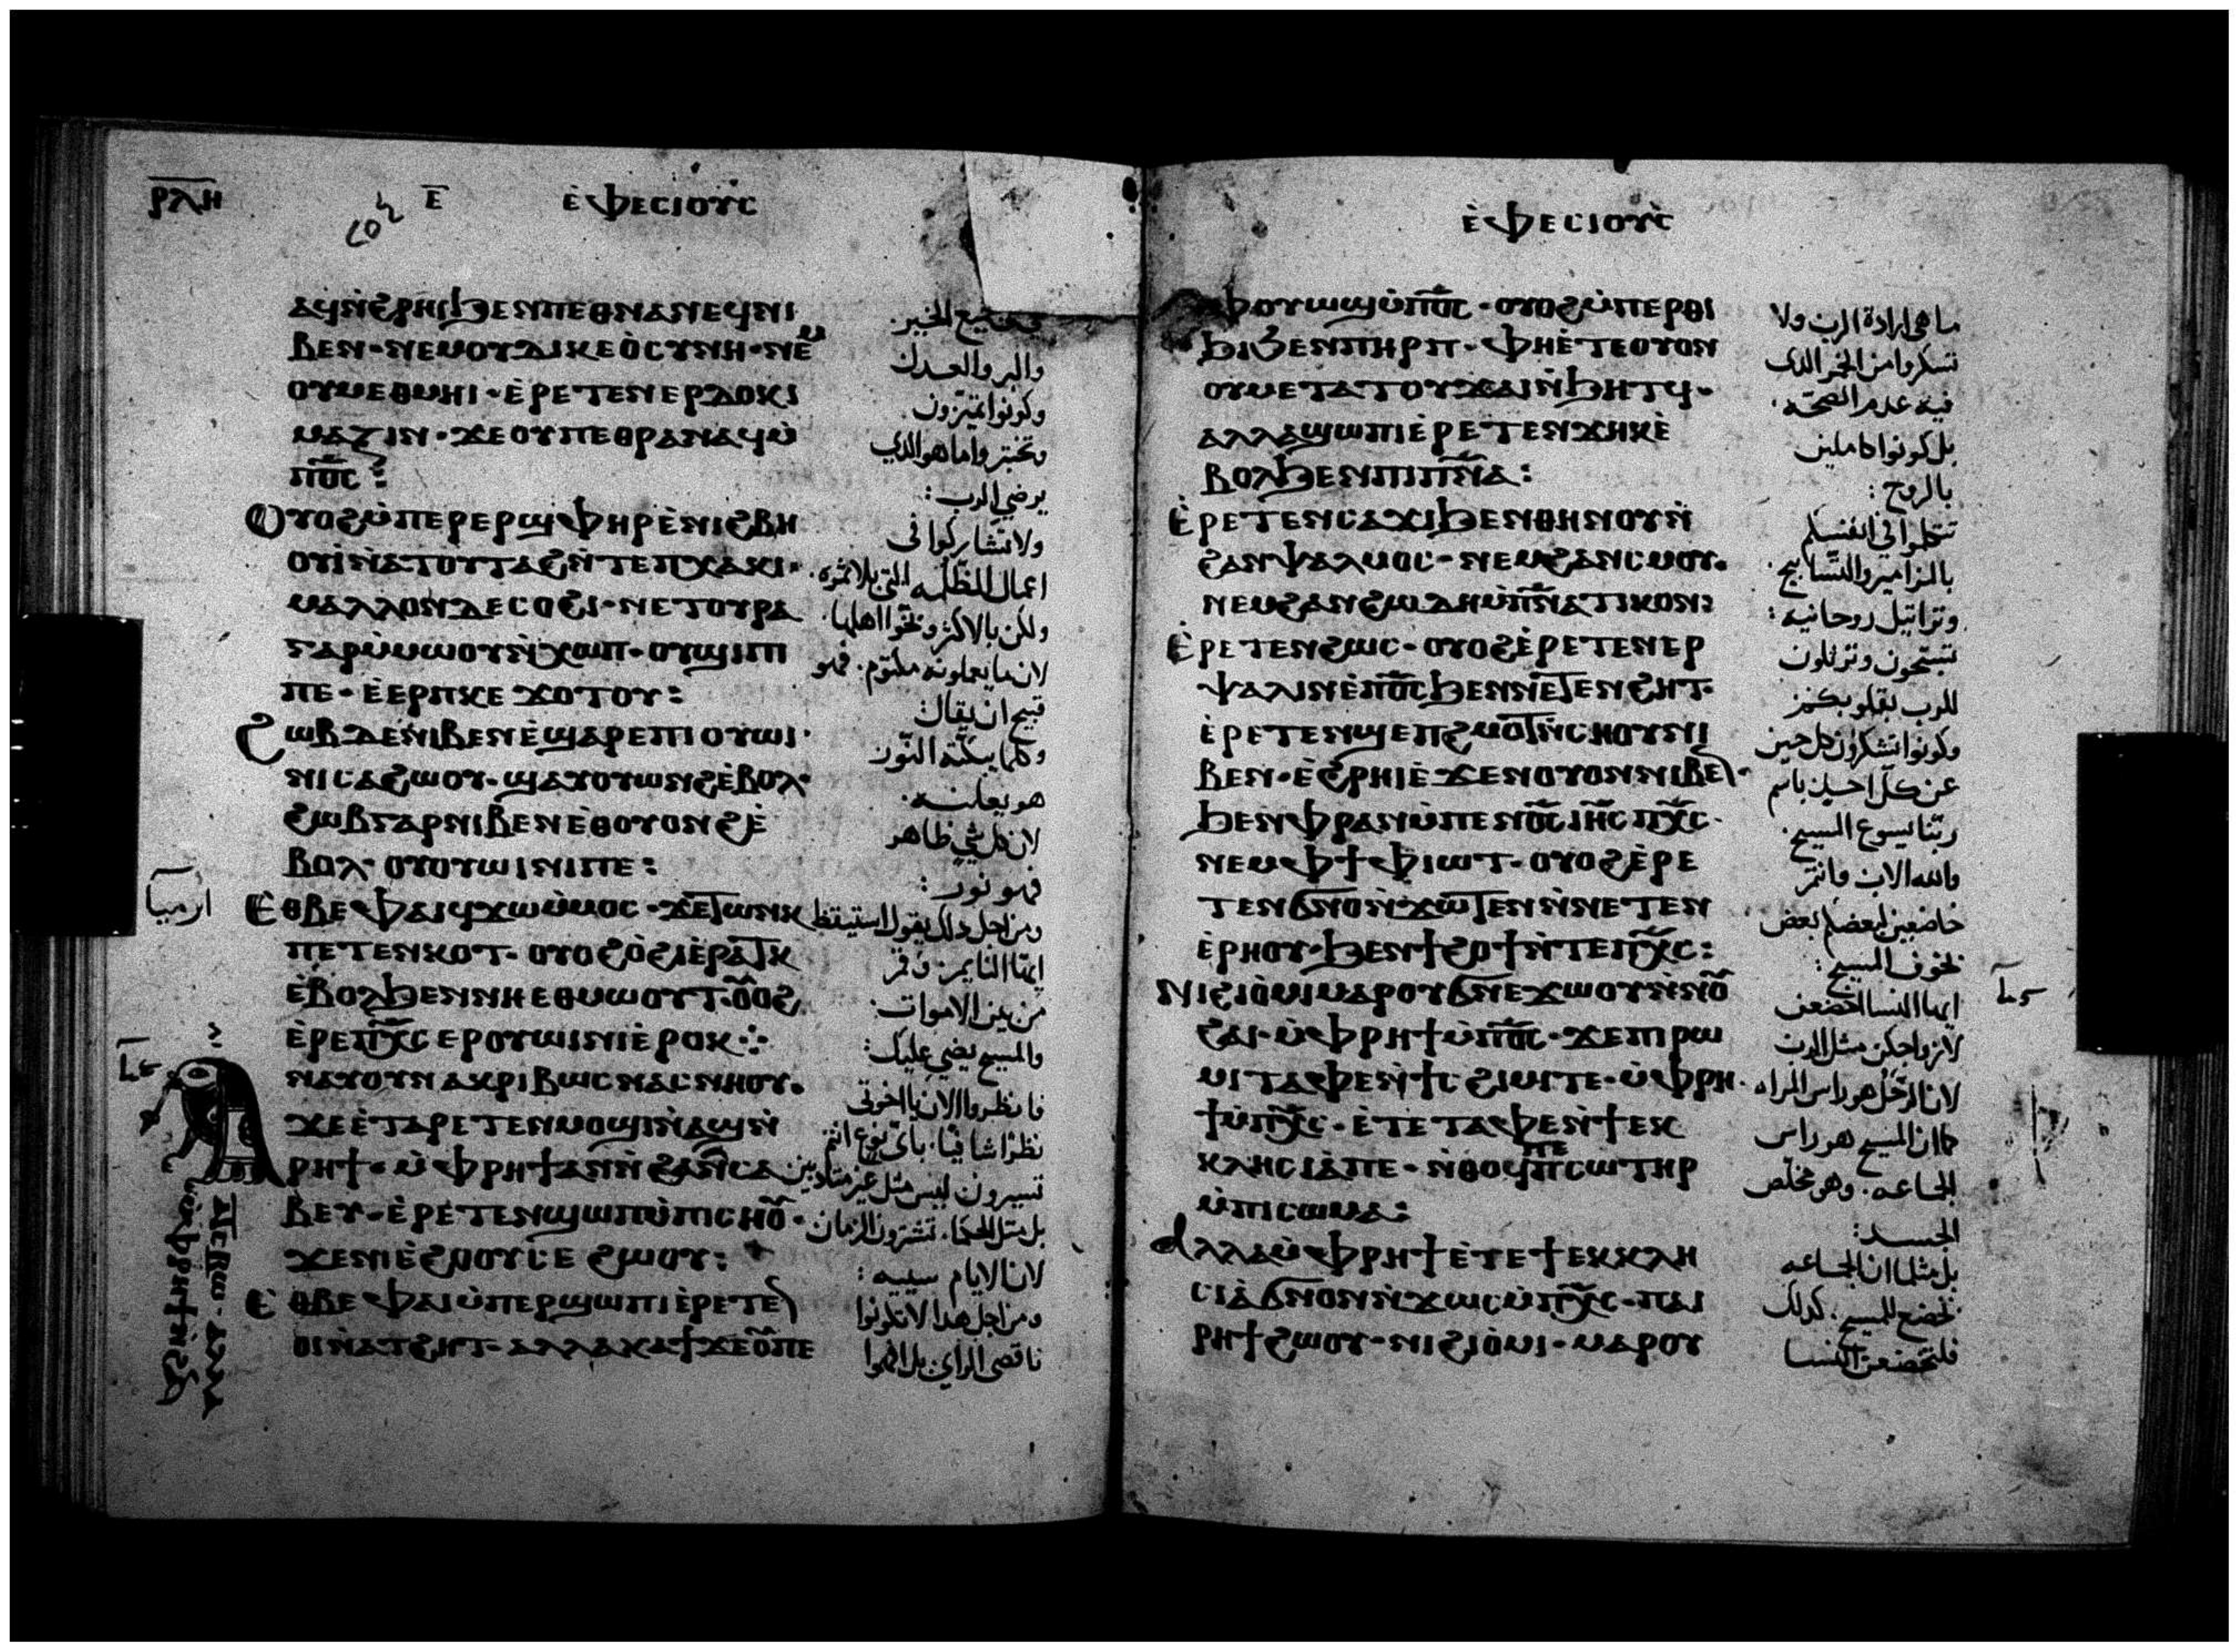 ⲣⲗⲏ
ⲉ̅
ⲉ̀ⲫⲉⲥⲓⲟⲩⲥ
ⲁϥⲛ̀ϩⲣⲏⲓϧⲉⲛⲡⲉⲑⲛⲁⲛⲉϥⲛⲓ
ⲃⲉⲛ· ⲛⲉⲙⲟⲩⲇⲓⲕⲉⲟ̀ⲥⲩⲛⲏ· ⲛⲉⲙ
ⲟⲩⲙⲉⲑⲙⲏⲓ· ⲉ̀ⲣⲉⲧⲉⲛⲉⲣⲇⲟⲕⲓ
ⲙⲁⲍⲓⲛ· ϫⲉⲟⲩⲡⲉⲑⲣⲁⲛⲁϥⲙ̀
ⲡⲟ̅ⲥ̅:
ⲟⲩⲟϩⲙ̀ⲡⲉⲣⲉⲣϣⲫⲏⲣⲉ̀ⲛⲓϩⲃⲏ
ⲟⲩⲓ̀ⲛⲁⲧⲟⲩⲧⲁϩⲛ̀ⲧⲉⲡⲭⲁⲕⲓ·
ⲙⲁⲗⲗⲟⲛⲇⲉⲥⲟϩⲓ· ⲛⲉⲧⲟⲩⲣⲁ
ⲅⲁⲣⲙ̀ⲙⲱⲟⲩⲛ̀ⲭⲱⲡ· ⲟⲩϣⲓⲡⲓ
ⲡⲉ· ⲉ̀ⲉⲣⲡⲕⲉ ϫⲟⲧⲟⲩ:
ϩⲱⲃⲇⲉⲛⲓⲃⲉⲛⲉ̀ϣⲁⲣⲉⲡⲓⲟⲩⲱⲓ
ⲛⲓⲥⲁϩⲱⲟⲩ· ϣⲁⲩⲟⲩⲱⲛϩⲉ̀ⲃⲟⲗ·
ϩⲱⲃⲅⲁⲣⲛⲓⲃⲉⲛⲉⲑⲟⲩⲟⲛϩⲉ̀
ⲃⲟⲗ· ⲟⲩⲟⲩⲱⲓⲛⲓⲡⲉ:
ⲉⲑⲃⲉⲫⲁⲓϥϫⲱⲙ̀ⲙⲟⲥ· ϫⲉⲧⲱⲛⲕ
ⲡⲉⲧⲉⲛⲕⲟⲧ· ⲟⲩⲟϩⲟ̀ϩⲓⲉ̀ⲣⲁⲧⲕ
ⲉ̀ⲃⲟⲗϧⲉⲛⲛⲏⲉⲑⲙⲱⲟⲩⲧ· ⲟⲩⲟϩ
ⲉ̀ⲣⲉⲡⲭ̅ⲥ̅ ⲉⲣⲟⲩⲱⲓⲛⲓⲉ̀ⲣⲟⲕ:·
ⲛⲁⲩⲟⲩⲛⲁⲕⲣⲓⲃⲱⲥⲛⲁⲥⲛⲏⲟⲩ·
ϫⲉⲉ̀ⲧⲁⲣⲉⲧⲉⲛⲙⲟϣⲓⲛ̀ⲁϣⲛ̀
ⲣⲏϯ· ⲙ̀ⲫⲣⲏϯⲁⲛⲛ̀ϩⲁⲛⲥⲁ
ⲃⲉⲩ· ⲉ̀ⲣⲉⲧⲉⲛϣⲱⲡⲙ̀ⲡⲓⲥⲏⲟⲩ·
ϫⲉⲛⲓⲉ̀ϩⲟⲟⲩⲥⲉ ϩⲱⲟⲩ:
ⲉ̀ⲑⲃⲉⲫⲁⲓⲙ̀ⲡⲉⲣϣⲱⲡⲓⲉ̀ⲣⲉⲧⲉⲛ
ⲟⲓⲛ̀ⲁⲧϩⲏⲧ· ⲁⲗⲗⲁⲕⲁϯϫⲉⲟⲩⲡⲉ
وفي جميع الخير.
والبر والعدل
وكونوا تميزون.
وتختبروا ما هو الذي
يرضي الرب:
ولا تشاركوا في
اعمال الظلمه التي بلا ثمره.
ولكن بالاكثر وبخوا اهلها.
لان ما يعملونه مكتوم. فهو
قبيح ان يقال
وكلما يبكته النور
هو يعلنه.
لان كل شي ظاهر
فهو نور:
ومن اجل ذلك يقول استيقظ
ايها النايم. وقم
من بين الاموات.
والمسيح يضي عليك:
فانظروا الان يا اخوتي
نظرًا شافيًا. باي نوع انتم
تسيرون ليس مثل غير متادبين
بل مثل الحكما. تشترون الزمان
لان الايام سييه:
ومن اجل هذا لا تكونوا
ناقصي الراي بل افهموا
ارميا
ⲁⲧⲥⲃⲱ· ⲁⲗⲗⲁ
ⲙ̀ⲫⲣⲏϯⲛ̀ϩⲁⲛ
ⲉ̀ⲫⲉⲥⲓⲟⲩⲥ
ⲫⲟⲩⲱϣⲙ̀ⲡⲟ̅ⲥ̅· ⲟⲩⲟϩⲙ̀ⲡⲉⲣⲑⲓ
ϧⲓϧⲉⲛⲡⲏⲣⲡ· ⲫⲏⲉ̀ⲧⲉⲟⲩⲟⲛ
ⲟⲩⲙⲉⲧⲁⲧⲟⲩϫⲁⲓⲛ̀ϧⲏⲧϥ·
ⲁⲗⲗⲁϣⲱⲡⲓⲉ̀ⲣⲉⲧⲉⲛϫⲏⲕⲉ̀
ⲃⲟⲗϧⲉⲛⲡⲓⲡⲛ̅ⲁ̅:
ⲉ̀ⲣⲉⲧⲉⲛⲥⲁϫⲓϧⲉⲛⲑⲏⲛⲟⲩⲛ̀
ϩⲁⲛⲯⲁⲗⲙⲟⲥ· ⲛⲉⲙϩⲁⲛⲥⲙⲟⲩ·
ⲛⲉⲙϩⲁⲛϩⲱⲇⲏⲙ̀ⲡⲛ̅ⲁ̅ⲧⲓⲕⲟⲛ:
ⲉ̀ⲣⲉⲧⲉⲛϩⲱⲥ· ⲟⲩⲟϩⲉ̀ⲣⲉⲧⲉⲛⲉⲣ
ⲯⲁⲗⲓⲛⲉ̀ⲡⲟ̅ⲥ̅ϧⲉⲛⲛⲉⲧⲉⲛϩⲏⲧ·
ⲉ̀ⲣⲉⲧⲉⲛϣⲉⲡϩⲙⲟⲧⲛ̀ⲥⲏⲟⲩⲛⲓ
ⲃⲉⲛ· ⲉ̀ϩⲣⲏⲓⲉ̀ϫⲉⲛⲟⲩⲟⲛⲛⲓⲃⲉⲛ·
ϧⲉⲛⲫⲣⲁⲛⲙ̀ⲡⲉⲛⲟ̅ⲥ̅ ⲓⲏ̅ⲥ̅ ⲡⲭ̅ⲥ̅·
ⲛⲉⲙⲫϯⲫⲓⲱⲧ· ⲟⲩⲟϩⲉ̀ⲣⲉ
ⲧⲉⲛϭⲛⲟⲛ̀ϫⲱⲧⲉⲛⲛ̀ⲛⲉⲧⲉⲛ
ⲉ̀ⲣⲏⲟⲩ· ϧⲉⲛϯϩⲟϯⲛ̀ⲧⲉⲡⲭ̅ⲥ̅:
ⲛⲓϩⲓⲟ̀ⲙⲓⲙⲁⲣⲟⲩϭⲛⲉϫⲱⲟⲩⲛ̀ⲛⲟⲩ
ϩⲁⲓ· ⲙ̀ⲫⲣⲏϯⲙ̀ⲡⲟ̅ⲥ̅· ϫⲉⲡⲓⲣⲱ
ⲙⲓⲧⲁⲫⲉⲛ̀ϯⲥϩⲓⲙⲓⲧⲉ· ⲙ̀ⲫⲣⲏ
ϯⲙ̀ⲡⲭ̅ⲥ̅· ⲉ̀ⲧⲉⲧⲁⲫⲉⲛ̀ϯⲉⲕ
ⲕⲗⲏⲥⲓⲁ̀ⲡⲉ· ⲛ̀ⲑⲟϥⲡⲉⲡⲥⲱⲧⲏⲣ
ⲙ̀ⲡⲓⲥⲱⲙⲁ:
ⲁⲗⲗⲁⲙ̀ⲫⲣⲏϯⲉ̀ⲧⲉϯⲉⲕⲕⲗⲏ
ⲥⲓⲁ̀ϭⲛⲟⲛⲛ̀ϫⲱⲥⲙ̀ⲡⲭ̅ⲥ̅· ⲡⲁⲓ
ⲣⲏϯϩⲱⲟⲩ· ⲛⲓϩⲓⲟ̀ⲙⲓ· ⲙⲁⲣⲟⲩ
ما هي ارادة الرب ولا
تسكروا من الخمر الذي
فيه عدم الصحّه.
بل كونوا كاملين
بالروح:
تتكلموا في انفسكم
بالمزامير والتسابيح.
وتراتيل روحانيه:
تسبحون وترتلون
للرب بقلوبكم:
وكونوا تشكرون كل حين
عن كل احد باسم
ربنا يسوع المسيح.
والله الاب وانتم
خاضعين بعضكم لبعض
بخوف المسيح:
ايها النسا اخضعن
لازواجكن مثل الرب
لان الرجل هو راس المراه
كما ان المسيح هو راس
الجماعه. وهو مخلص
الجسد:
بل مثلما ان الجماعه
تخضع للمسيح. كذلك
فلتخضعن النسا